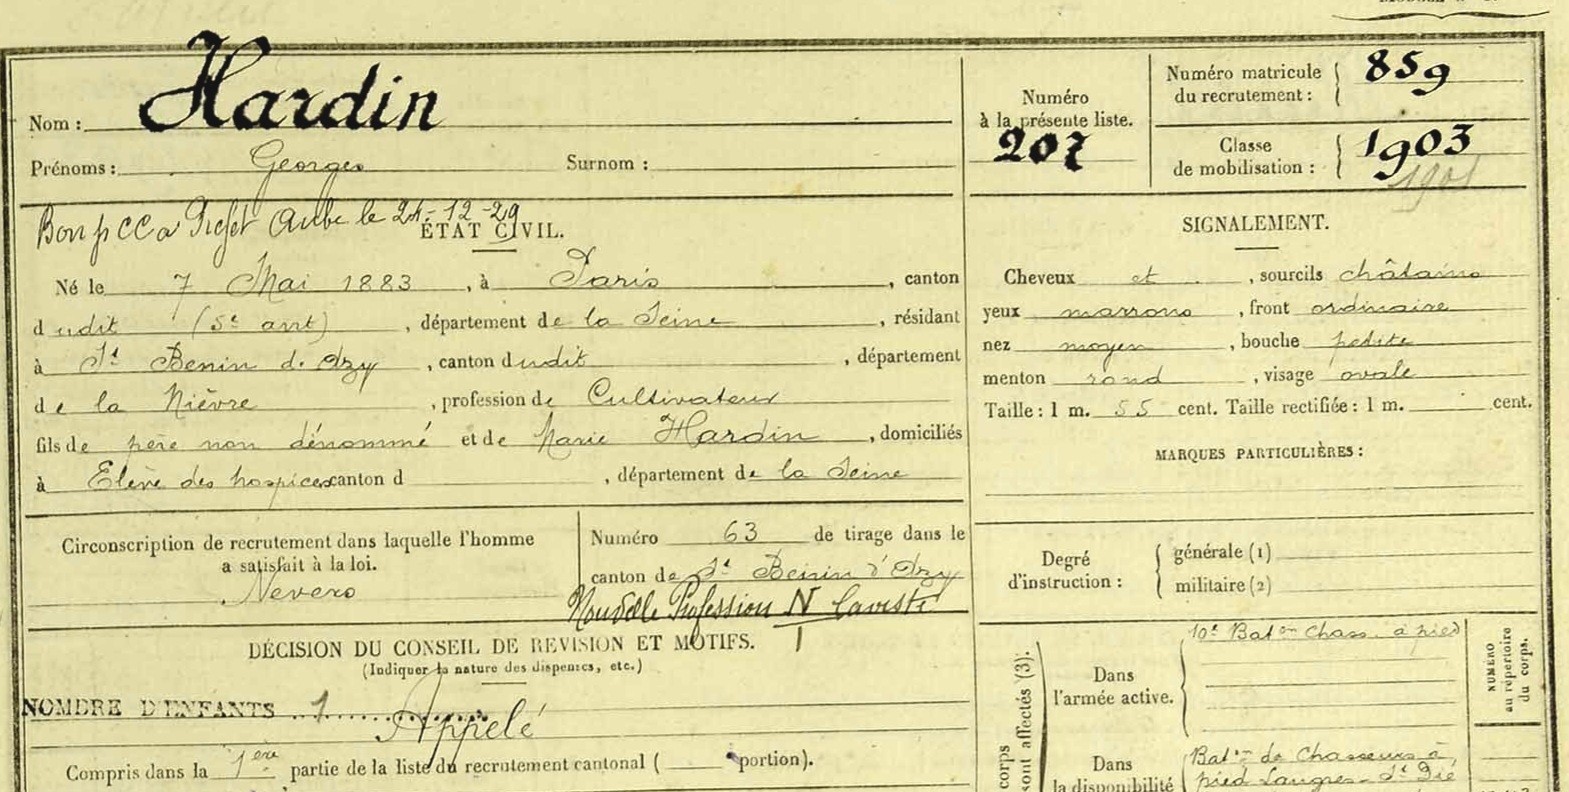 Hardin
Nom :
Prénoms : Georges Surnom :
Numéro
à la présente liste.
207
Numéro matricule
du recrutement : 859
Classe
de mobilisation : 1903
Bon p CC a Préfet Aube le 24-12-29
ÉTAT CIVIL.
Né le 7 Mai 1883, à Paris, canton
dudit (5e arrt), département de la Seine, résidant
à St Benin d'Azy, canton dudit, département
de la Nièvre, profession de Cultivateur
fils de père non dénommé et de Marie Hardin, domiciliés
à Elève des hospices canton d , département de la Seine
SIGNALEMENT.
Cheveux et , sourcils châtains
yeux marrons, front ordinaire
nez moyen, bouche petite
menton rond, visage ovale
Taille : 1 m. 55 cent. Taille rectifiée : 1 m. cent.
MARQUES PARTICULIÈRES :
Circonscription de recrutement dans laquelle l'homme
a satisfait à la loi.
Nevers
Numéro 63 de tirage dans le
canton de St Benin d'Azy
Nouvelle Profession N caviste
Degré
d'instruction :
générale (1)
militaire (2)
DÉCISION DU CONSEIL DE REVISION ET MOTIFS.
(Indiquer la nature des dispenses, etc.)
NOMBRE D'ENFANTS 1
Appelé
Compris dans la 1ère partie de la liste du recrutement cantonal ( portion).
corps
sont affectés (3).
Dans
l'armée active.
10e Baton Chass. à pied
Dans
la disponibilité
Baton de Chasseurs à
pied Langres-St Dié
NUMÉRO
au répertoire
du corps.